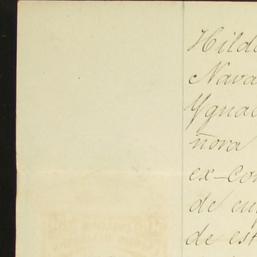 Hild
Nava
Ygnac
nova
ex-con
de
de est